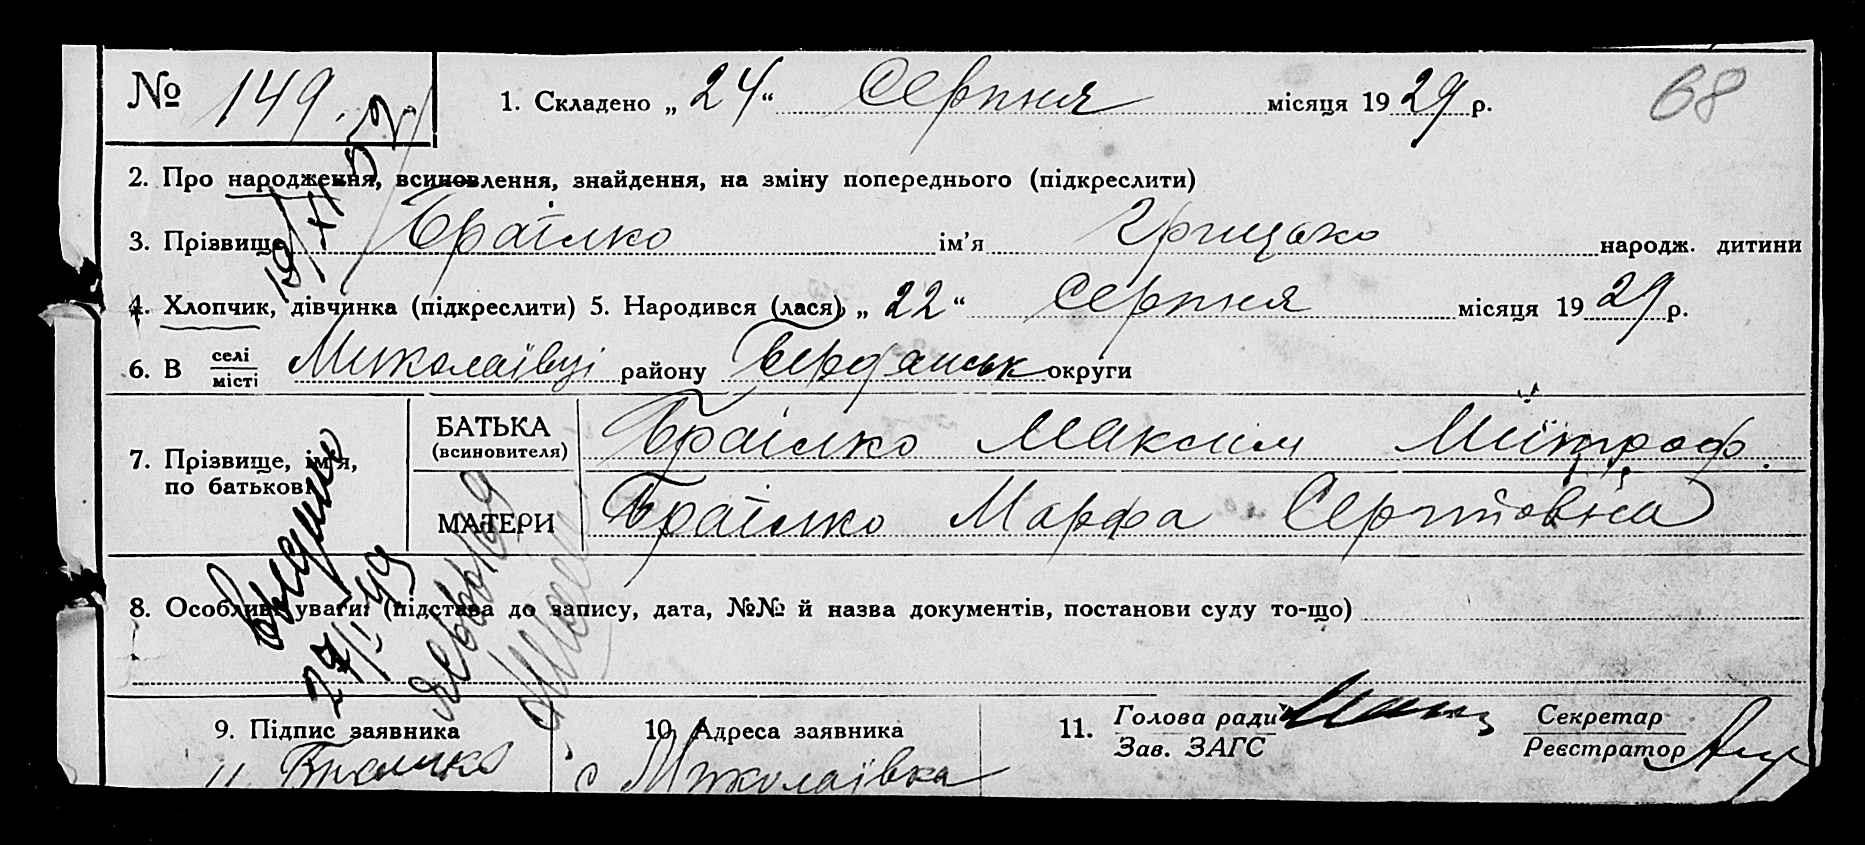 № 149. 1. Складено „ 24 “ Серпня місяця 1929 р. 68
2. Про народження, всиновлення, знайдення, на зміну попереднього (підкреслити)
3. Прізвище Браїлко ім’я Грицько народж. дитини
4. Хлопчик, дівчинка (підкреслити) 5. Народився (лася) „ 22 “ Серпня місяця 1929 р.
6. В селі Миколаївці району Бердянськ округи
місті
БАТЬКА
(всиновителя) Браїлко Максим Мітроф.
7. Прізвище, ім’я,
по батькові
МАТЕРИ Браїлко Марфа Сергіївна
8. Особливі уваги: (підстава до запису, дата, №№ й назва документів, постанови суду то-що)
27/I 49
9. Підпис заявника 10. Адреса заявника 11. Голова ради Секретар
Зав. ЗАГС Реєстратор
Браилко с Миколаївка